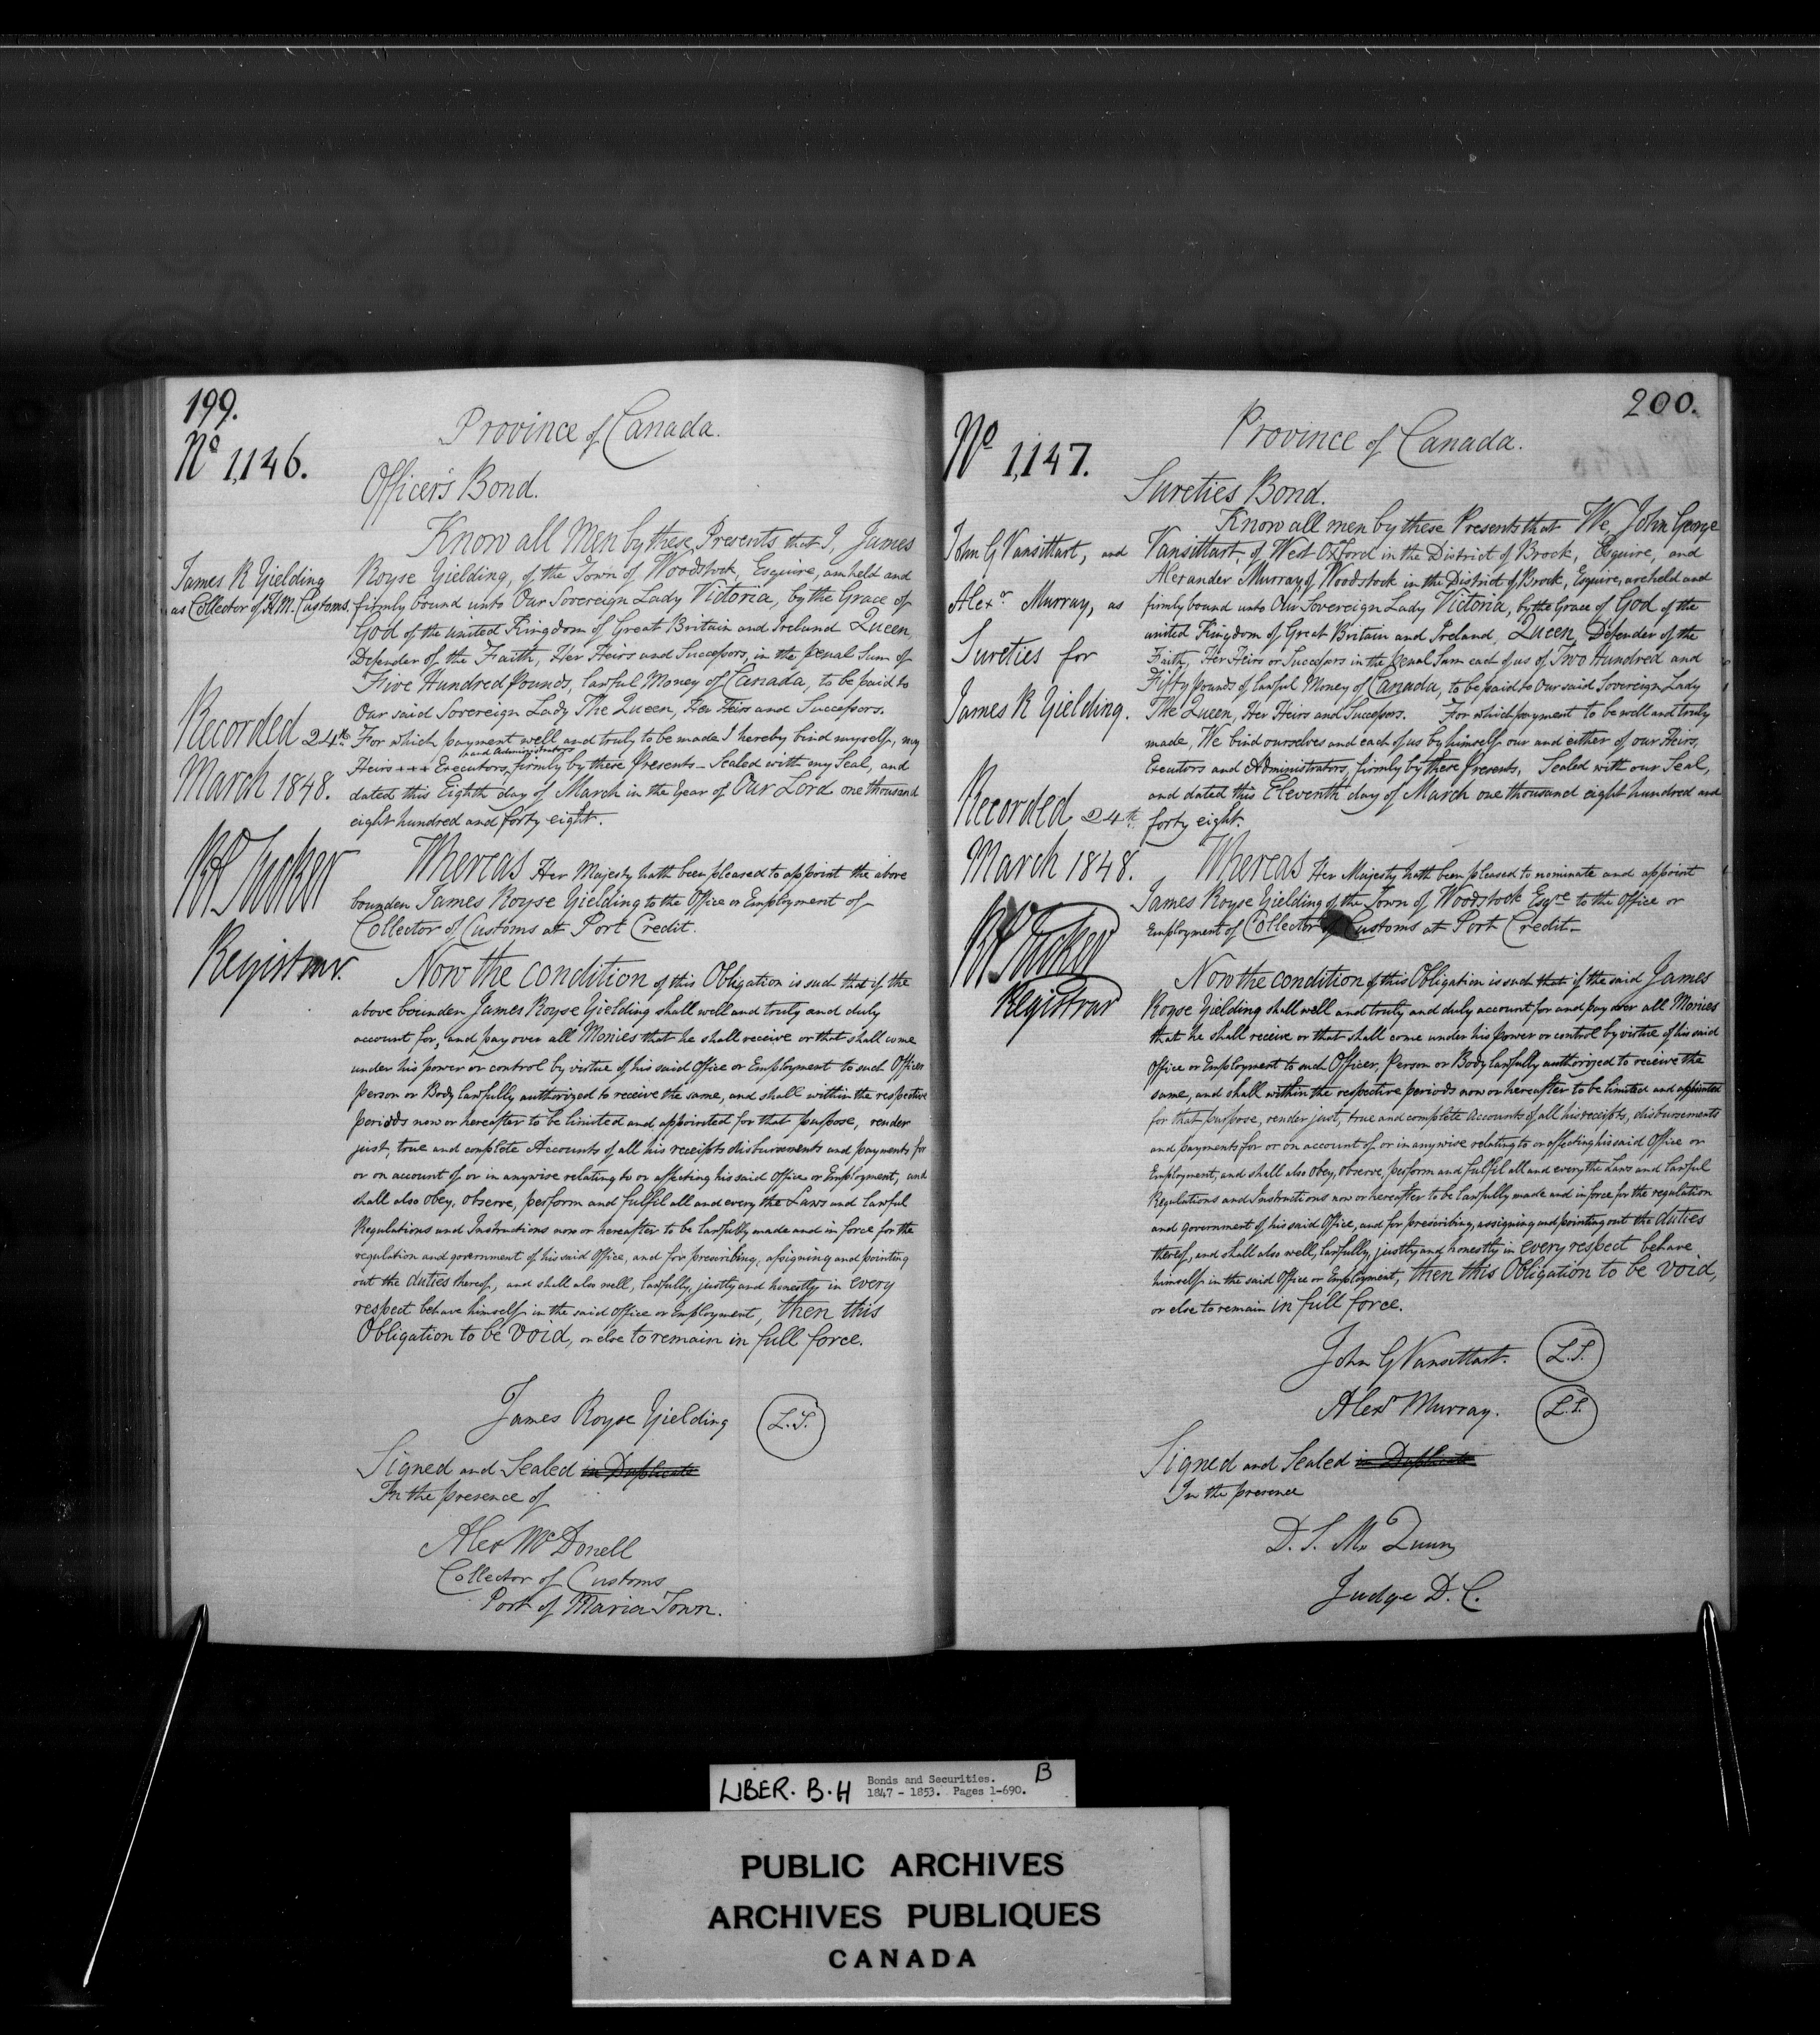 199.
Nº 1,146.
Province of Canada.
Officer's Bond.
Know all Men by these Presents that I, James
James R Yielding
as Collector of H.M. Customs.
Royse Yielding, of the Town of Woodstock, Esquire, am held and
firmly bound unto Our Sovereign Lady Victoria, by the Grace of
God of the United Kingdom of Great Britain and Ireland Queen,
Defender of the Faith, Her Heirs and Successors, in the penal Sum of
Five Hundred Pounds, lawful Money of Canada, to be paid to
Our said Sovereign Lady The Queen, Her Heirs and Successors.
Recorded 24th
March 1848.
For which payment well and truly to be made I hereby bind myself, my
and Administrators
Heirs +++ Executors, firmly by these Presents – Sealed with my Seal, and
dated this Eighth day of March in the Year of Our Lord one thousand
eight hundred and forty eight.
Tucker
Registrar.
Whereas Her Majesty hath been pleased to appoint the above
bounden James Royse Yielding to the Office or Employment of
Collector of Customs at Port Credit.
Now the condition of this Obligation is such that if the
above bounden James Royse Yielding shall well and truly and duly
account for, and pay over all Monies that he shall receive or that shall come
under his power or control by virtue of his said Office or Employment to such Officer
Person or Body lawfully authorized to receive the same, and shall within the respective
periods now or hereafter to be limited and appointed for that purpose, render
just, true and complete Accounts of all his receipts disbursements and payments for
or on account of or in anywise relating to or affecting his said Office or Employment, and
shall also obey, observe, perform and fulfil all and every the Laws and lawful
Regulations and Instructions now or hereafter to be lawfully made and in force for the
regulation and government of his said Office, and for prescribing, assigning and pointing
out the duties thereof, and shall also well, lawfully, justly and honestly in every
respect behave himself in the said Office or Employment, then this
Obligation to be void, or else to remain in full force.
James Royse Yielding L.S.
Signed and Sealed in Duplicate
In the presence of
Alex McDonell
Collector of Customs
Port of Maria Town.
200.
Nº 1,147.
Province of Canada.
Sureties Bond.
Know all men by these Presents that We, John George
John G Vansittart, and
Alexr Murray, as
Sureties for
James R Yielding.
Vansittart, of West Oxford in the District of Brock, Esquire, and
Alexander Murray of Woodstock in the District of Brock, Esquire, are held and
firmly bound unto Our Sovereign Lady Victoria, by the Grace of God of the
united Kingdom of Great Britain and Ireland, Queen, Defender of the
Faith, Her Heirs or Successors in the penal Sum each of us of Two Hundred and
Fifty pounds of lawful Money of Canada, to be paid to Our said Sovereign Lady
The Queen, Her Heirs and Successors. For which payment to be well and truly
made, We bind ourselves and each of us by himself our and either of our Heirs,
Executors and Administrators, firmly by these Presents, Sealed with our Seal,
and dated this Eleventh day of March one thousand eight hundred and
forty eight.
Recorded 24th
March 1848.
Tucker
Registrar
Whereas Her Majesty hath been pleased to nominate and appoint
James Royse Yielding of the Town of Woodstock Esqre to the Office or
Employment of Collector of Customs at Port Credit –
Now the condition of this Obligation is such that if the said James
Royse Yielding shall well and truly and duly account for and pay over all Monies
that he shall receive or that shall come under his power or control by virtue of his said
Office or Employment to such Officer, Person or Body lawfully authorized to receive the
same, and shall within the respective periods now or hereafter to be limited and appointed
for that purpose, render just, true and complete Accounts of all his receipts, disbursements
and payments for or on account of or in anywise relating to or affecting his said Office or
Employment, and shall also obey, observe, perform and fulfil all and every the Laws and lawful
Regulations and Instructions now or hereafter to be lawfully made and in force for the regulation
and government of his said Office, and for prescribing, assigning and pointing out the duties
thereof, and shall also well, lawfully, justly and honestly in every respect behave
himself in the said Office or Employment, then this Obligation to be void,
or else to remain in full force.
John G Vansittart. L.S.
Alexr Murray. L.S.
Signed and Sealed in Duplicate
In the presence
D. S. Mc Queen
Judge D. C.
LIBER. B.H Bonds and Securities. B
1847 - 1853. Pages 1-690.
PUBLIC ARCHIVES
ARCHIVES PUBLIQUES
CANADA